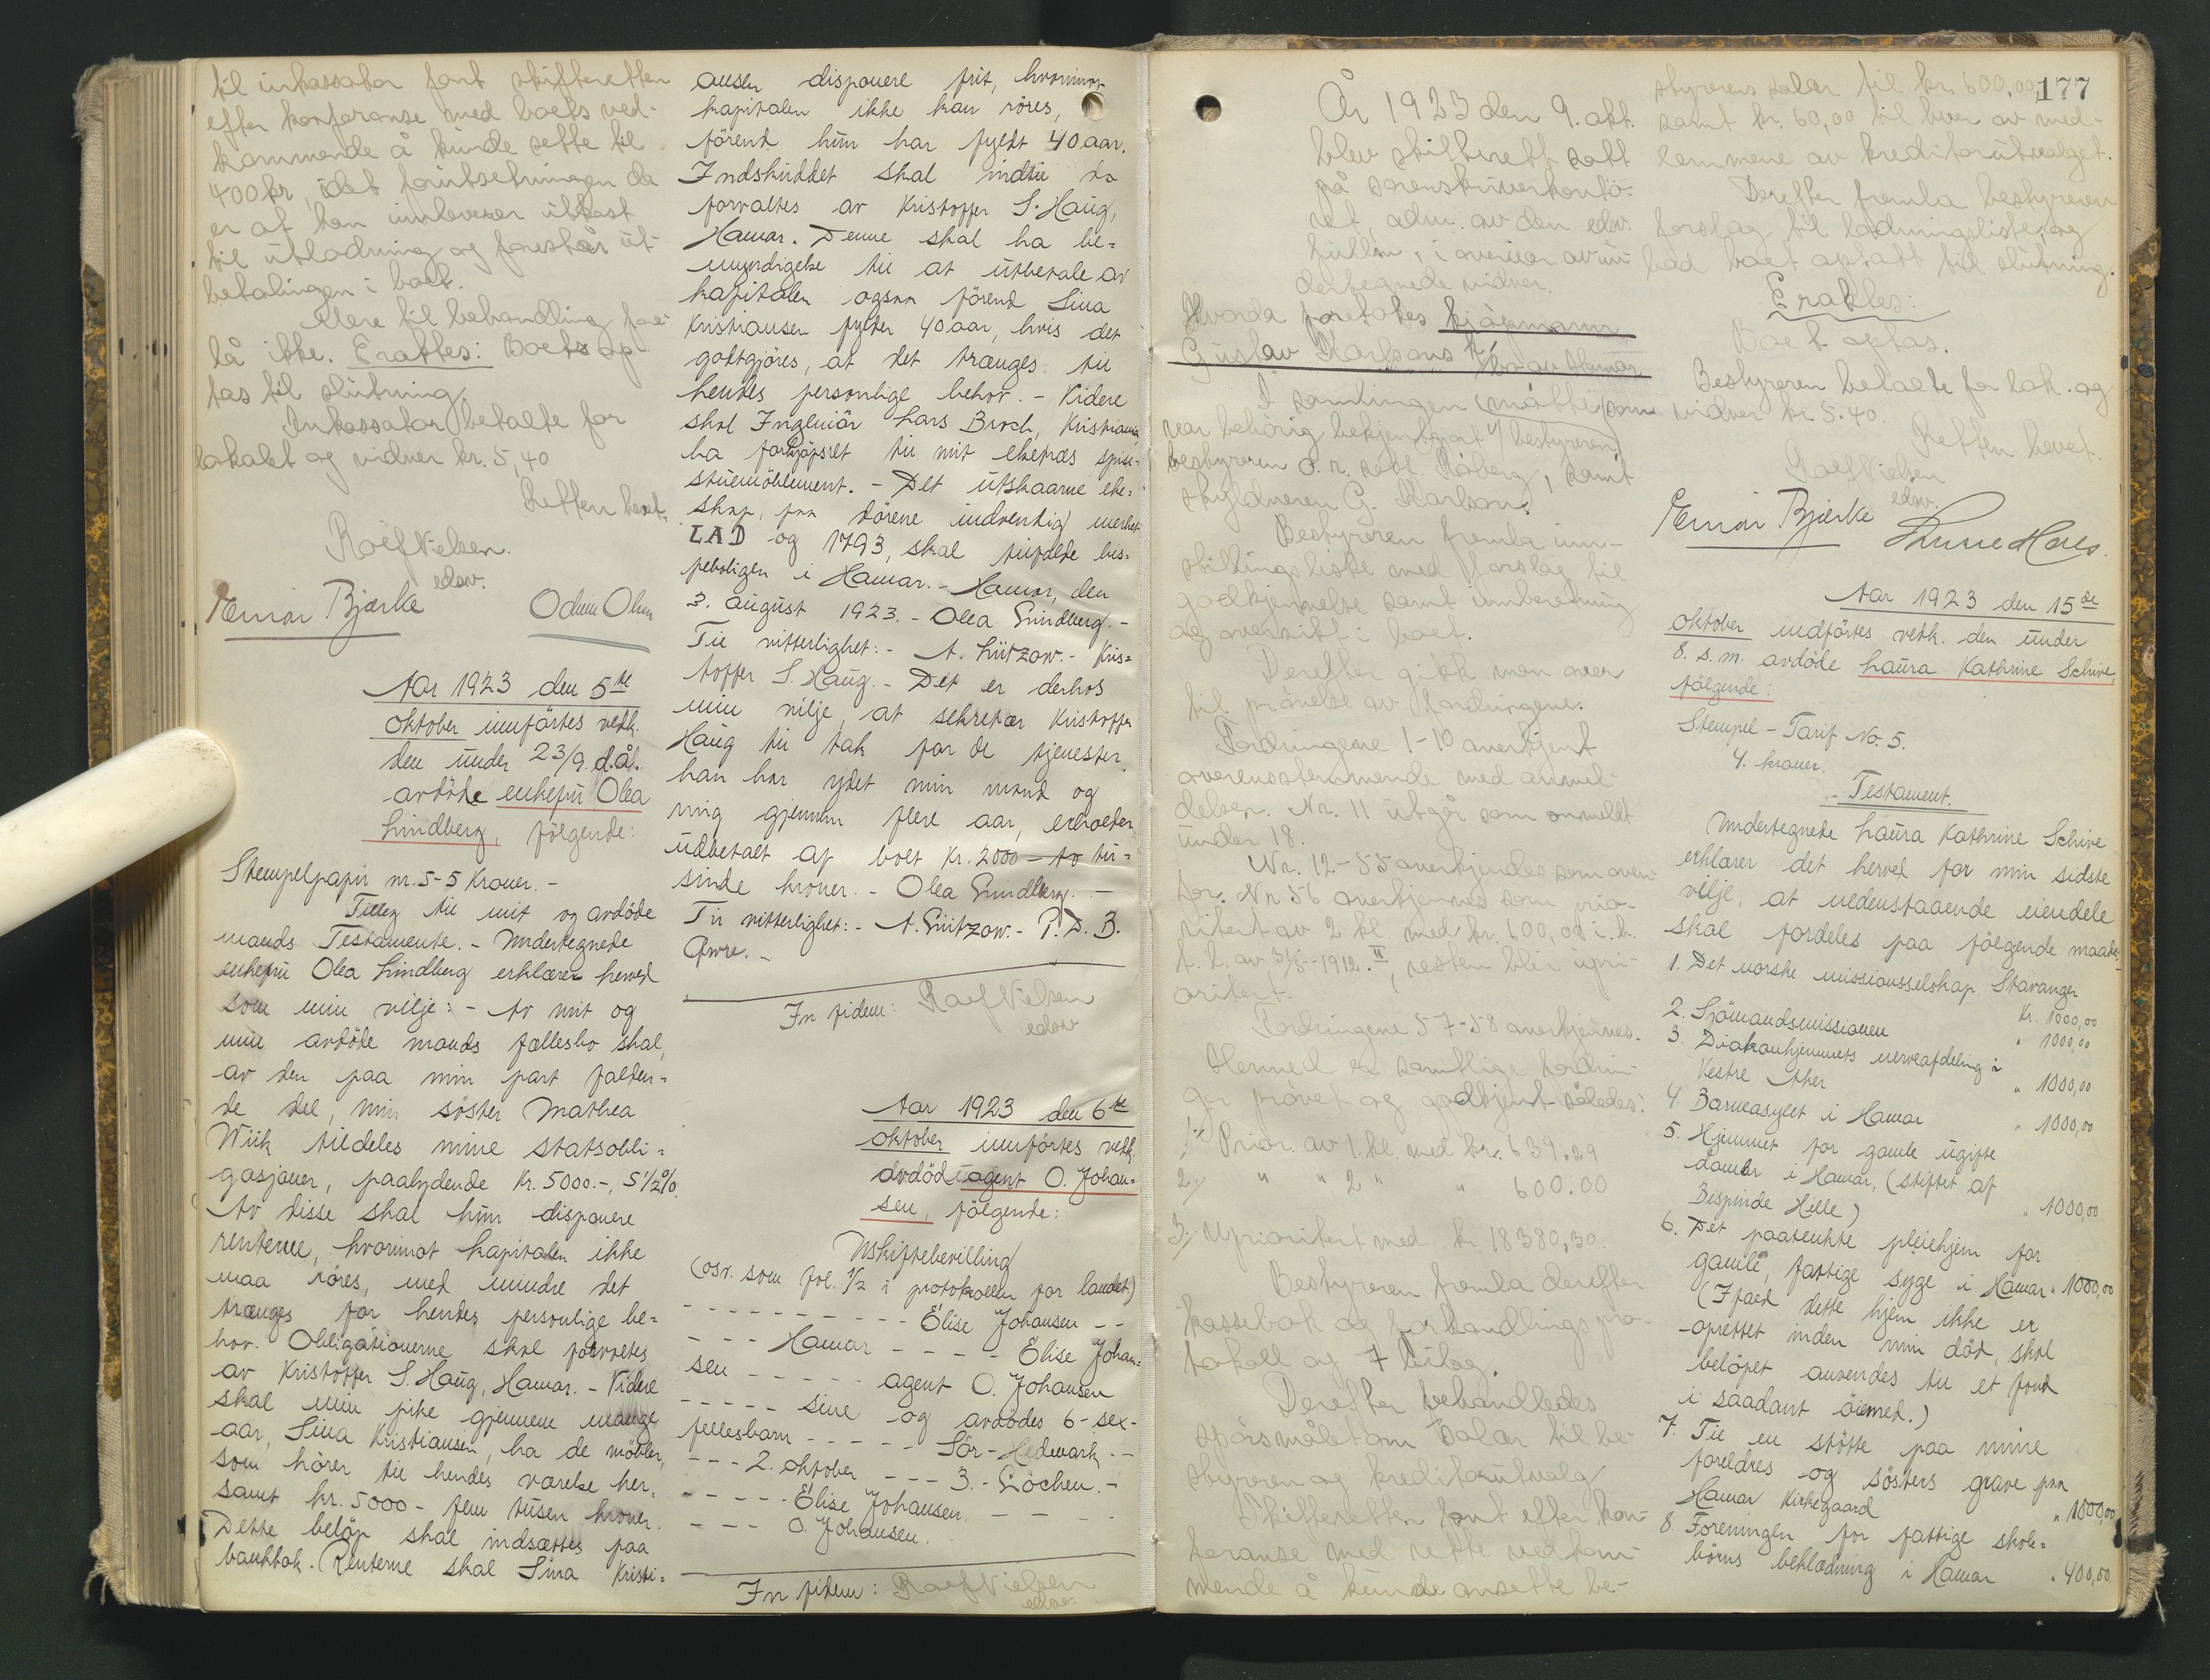 til inkassator fant skifteretten
efter konferanse med boets ved-
kommende å kunde sette til
400 kr, idet forutsetningen da
er at han innleverer utkast
til utlodning og forestår ut-
betalingen i boet.
Mere til behandling fore-
lå ikke. Eraktes: Boet op-
tas til slutning.
Inkassator betalte for
lokalet og vidner kr. 5,40
Retten hevet.
Rolf Nielsen.
edsv.
Einar Bjerke
Odin Olsen
Aar 1923 den 5te
oktober innførtes vedk.
den under 23/9. d.å.
avdøde enkefru Olea
Lindberg, følgende:
Stempelpapir nr. 5-5 Kroner. -
Tillæg til mit og avdøde
mands Testamente. - Undertegnede
enkefru Olea Lindberg erklærer herved
som min vilje: - Av mit og
min avdøde mands fællesbo skal,
av den paa min part falden=
de del, min søster Mathea
Wiik tildeles mine statsobli=
gasjoner, paalydende Kr. 5000.-, 5½%.
Av disse skal hun disponere
renterne, hvorimot kapitalen ikke
maa røres, med mindre det
trænges for hendes personlige be=
hov. Obligationerne skal forvaltes
av Kristoffer S. Haug, Hamar. - Videre
skal min pike gjennem mange
aar, Lina Kristiansen, ha de møbler,
som hører til hendes værelse her,
samt kr. 5000 - fem tusen kroner.
Dette beløp skal indsættes paa
bankbok. Renterne skal Lina Kristi=
ansen disponere frit, hvorimot
kapitalen ikke kan røres,
førend hun har fyldt 40 aar.
Indskuddet skal indtil da
forvaltes av Kristoffer S. Haug,
Hamar. Denne skal ha be=
myndigelse til at utbetale av
kapitalen ogsaa førend Lina
Kristiansen fylder 40 aar, hvis det
godtgjøres, at det trænges til
hendes personlige behov. - Videre
skal Ingeniør Lars Broch, Kristiania
ha forkjøpsret til mit eketræs spise-
stuemøblement. - Det utskaarne eke=
skap, paa dørene indvendig merket
LAD og 1793, skal tilfalde bis=
peboligen i Hamar. - Hamar, den
3. august 1923. - Olea Lindberg. -
Til vitterlighet: - A. Lützow. - Kris=
toffer S. Haug. - Det er derhos
min vilje, at sekretær Kristoffer
Haug til tak for de tjenester
han har ydet min mand og
mig gjennem flere aar, erholder
udbetalt af boet Kr. 2000 - to tu=
sinde kroner. - Olea Lindberg. -
Til vitterlighet: - A. Lützow. - P. D. B.
In fidem: Rolf Nielsen
edsv
Aar 1923 den 6te
oktober innførtes vedk.
avdøde agent O. Johan=
sen, følgende:
Uskiftebevilling
(osv. som fol. 1/2 i protokollen for landet)
- - - - - - - - - - Elise Johansen - -
- - - Hamar - - - - - Elise Johan=
sen - - - - - agent O. Johansen
- - - - - sine og avdødes 6 - sex-
fellesbarn - - - - - Sør-Hedmark. -
- - - 2. oktober - - - 3. - Løchen. -
- - - - - Elise Johansen. - - - -
- - - O. Johansen.
In fidem: Rolf Nielsen
edsv.
177
År 1923 den 9. okt.
blev skifterett satt
på sorenskriverkonto-
ret, adm. av den edsv.
fullm, i overvær av un-
dertegnede vidner.
Hvorda foretokes kjøpmann
Gustav Karlsons k/bo av Hamar
I samlingen (møtte) som
var behørig bekjentgjort v/ bestyreren,
bestyreren o.r. sakf. Råberg, samt
skyldneren G. Karlson.
Bestyreren fremla inn-
stillingsliste med forslag til
godkjennelse samt innberetning
og oversikt i boet.
Derefter gikk man over
til prøvelse av fordringene.
Fordringene 1-10 anerkjent
overensstemmende med anmel-
delsen. Nr. 11 utgår som anmeldt
under 18.
Nr. 12-55 anerkjendes som oven-
for. Nr. 56 anerkjennes som prio-
ritert av 2 kl. med kr. 600,00 i.h.
t. l. av 31/5-1912. II, resten blir upri-
oritert.
Fordringene 57-58 anerkjennes.
Hermed er samtlige fordrin-
ger prøvet og godkjent således:
1./ Prior. av 1. kl. med kr. 639.29
2./ " " 2 " " 600.00
3./ Uprioritert med kr. 18380,30.
Bestyreren fremla derefter
kassebok og forhandlingspro-
tokoll og 7 bilag.
Derefter behandledes
spørsmålet om salær til be-
styreren og kreditorutvalg
Skifteretten fant efter kon-
feranse med rette vedkom-
mende å kunde ansette be-
styrerens salær til kr. 600,00
samt kr. 60,00 til hver av med-
lemmene av kreditorutvalget.
Derefter fremla bestyreren
forslag til lodningsliste og
bad boet optatt til slutning.
Eraktes:
Boet optas.
Bestyreren betalte for lok. og
vidner kr. 5.40.
Retten hevet.
Rolf Nielsen
edsv.
Einar Bjerke
Aar 1923 den 15de
oktober indførtes vedk. den under
8. s. m. avdøde Laura Kathrine Schive,
følgende:
Stempel - Tarif No. 5.
4. kroner.
- Testament.
Undertegnede Laura Kathrine Schive
erklærer det herved for min sidste
vilje, at nedenstaaende eiendele
skal fordeles paa følgende maade:
1. Det norske missionsselskap Stavanger
Kr. 1000,00
2. Sjømandsmissionen " 1000,00
3. Diakonhjemmets nerveafdeling i
Vestre Aker " 1000,00
4. Barneasylet i Hamar " 1000,00
5. Hjemmet for gamle ugifte
damer i Hamar, (stiftet af
Bispinde Hille) " 1000,00
6. Det paatænkte pleiehjem for
gamle, fattige syge i Hamar " 1000,00
(Ifald dette hjem ikke er
oprettet inden min død, skal
beløpet anvendes til et fond
i saadant øiemed.)
7. Til en støtte paa mine
foreldres og søsters grave paa
Hamar Kirkegaard " 1000,00
8. Foreningen for fattige skole=
børns beklædning i Hamar " 400,00.